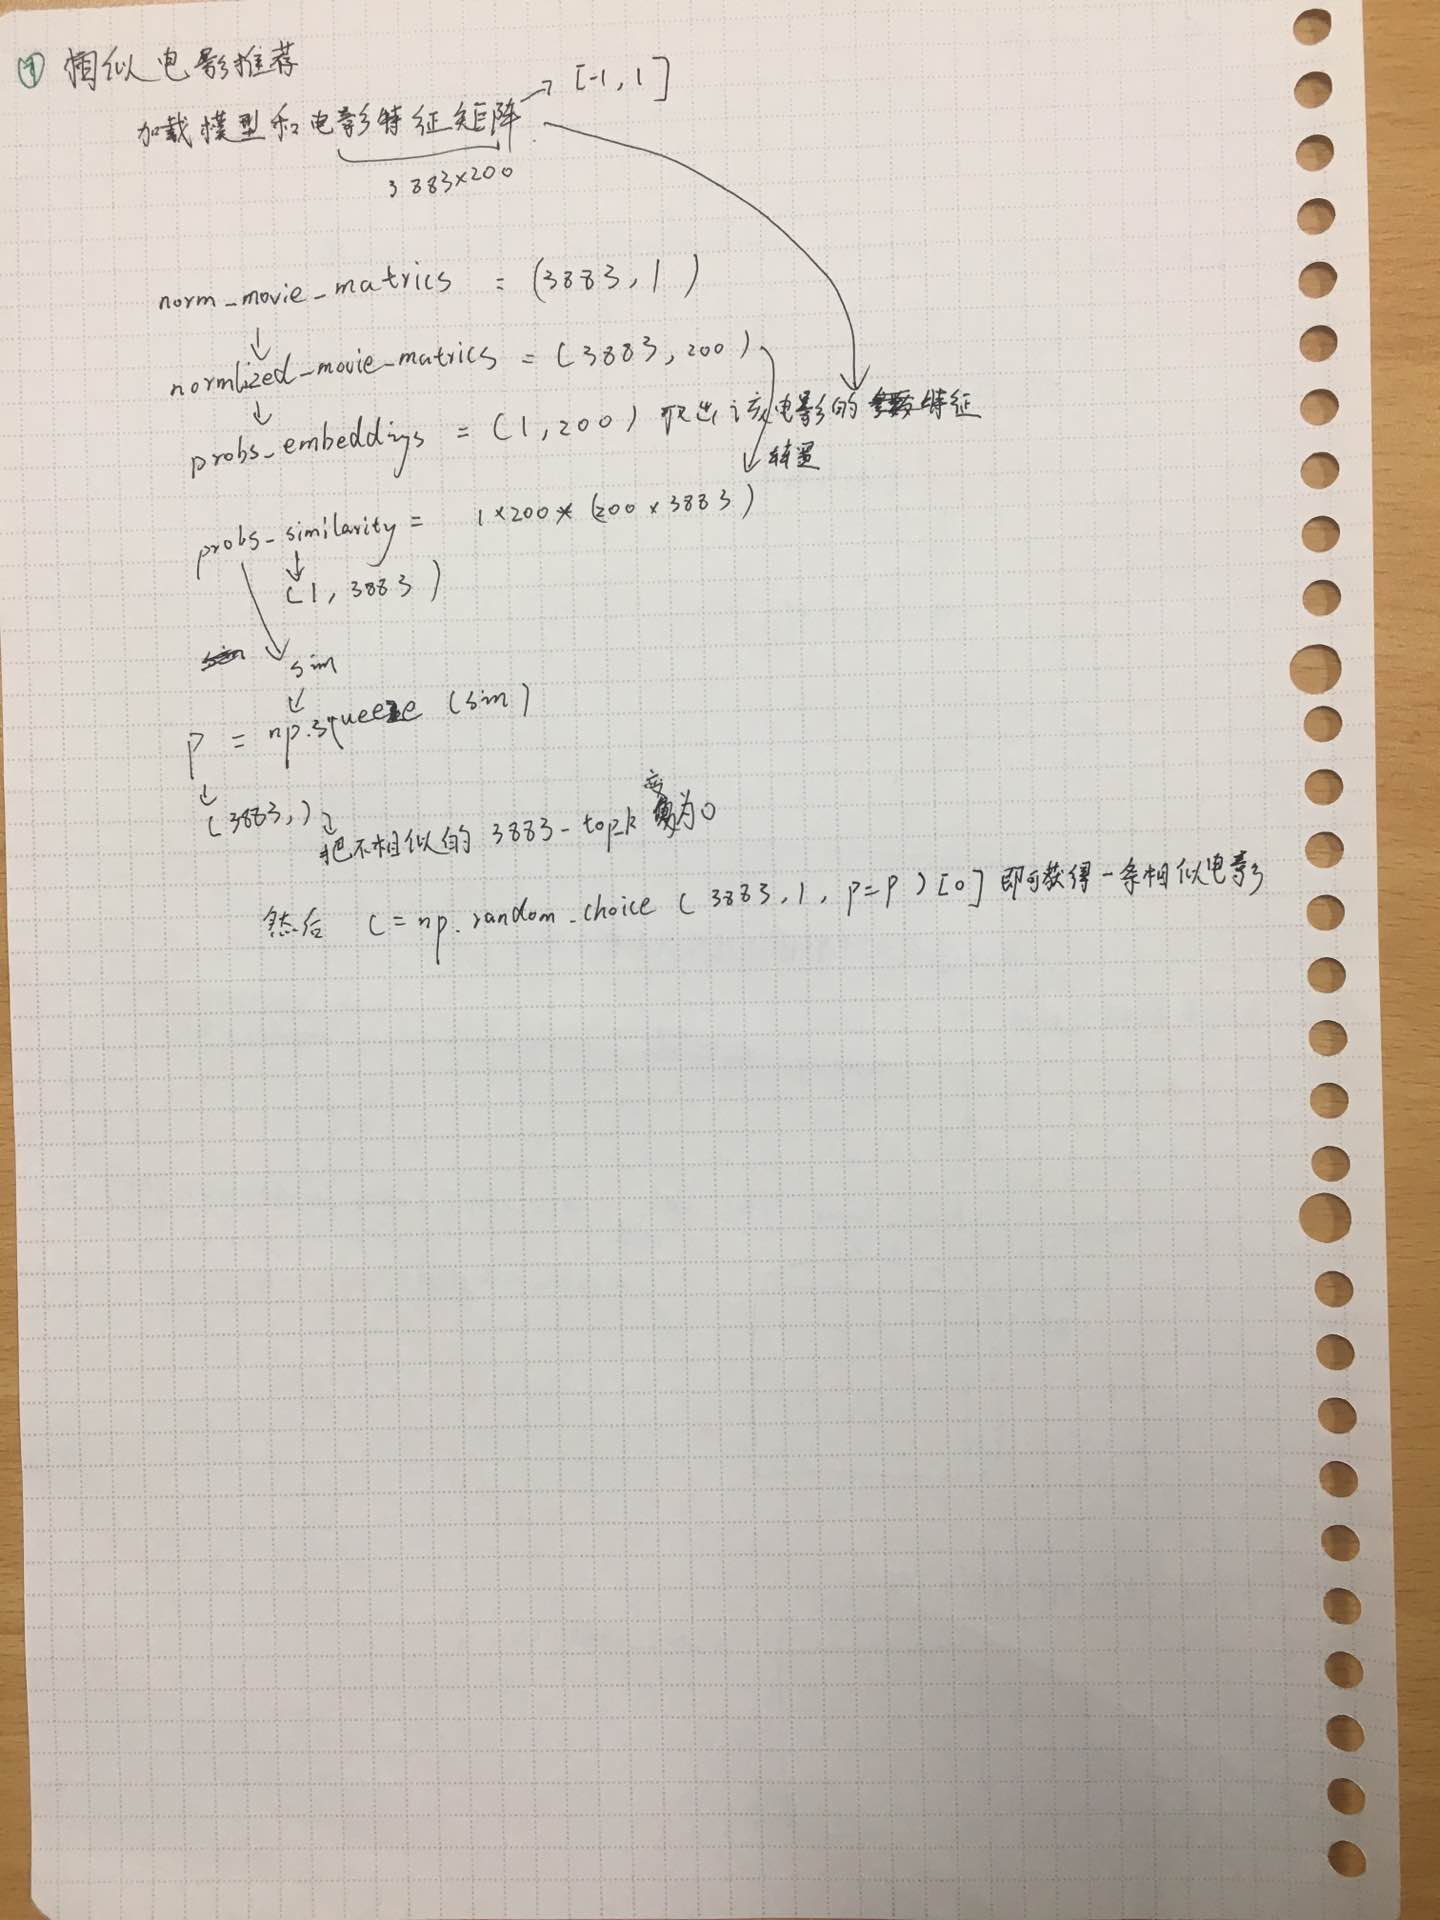 相似电影推荐
加载模型和电影特征矩阵 → [-1, 1]
3883×200
norm_movie_matrics = (3883, 1)
normlized_movie_matrics = (3883, 200)
probs_embeddings = (1, 200) 取出该电影的特征
转置
probs_similarity = 1×200 * (200×3883)
(1, 3883)
sim
p = np.squeeze (sim)
(3883,)
把不相似的 3883-topk 变为0
然后 c = np.random_choice (3883, 1, p=p) [0] 即可获得一条相似电影